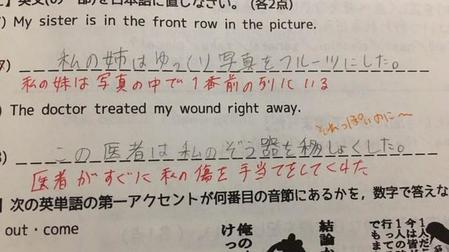 】英文(の一部)を日本語に直しなさい。 (各2点)
7) My sister is in the front row in the picture.
7) 私の姉はゆっくり写真をフルーツにした。
私の妹は写真の中で1番前の列にいる
) The doctor treated my wound right away.
それっぽいのに〜
3) この医者は私のぞう器を しょくした。
医者がすぐに私の傷を手当てをしてくれた
】次の英単語の第一アクセントが何番目の音節にあるかを、数字で答えな
out・come
結論